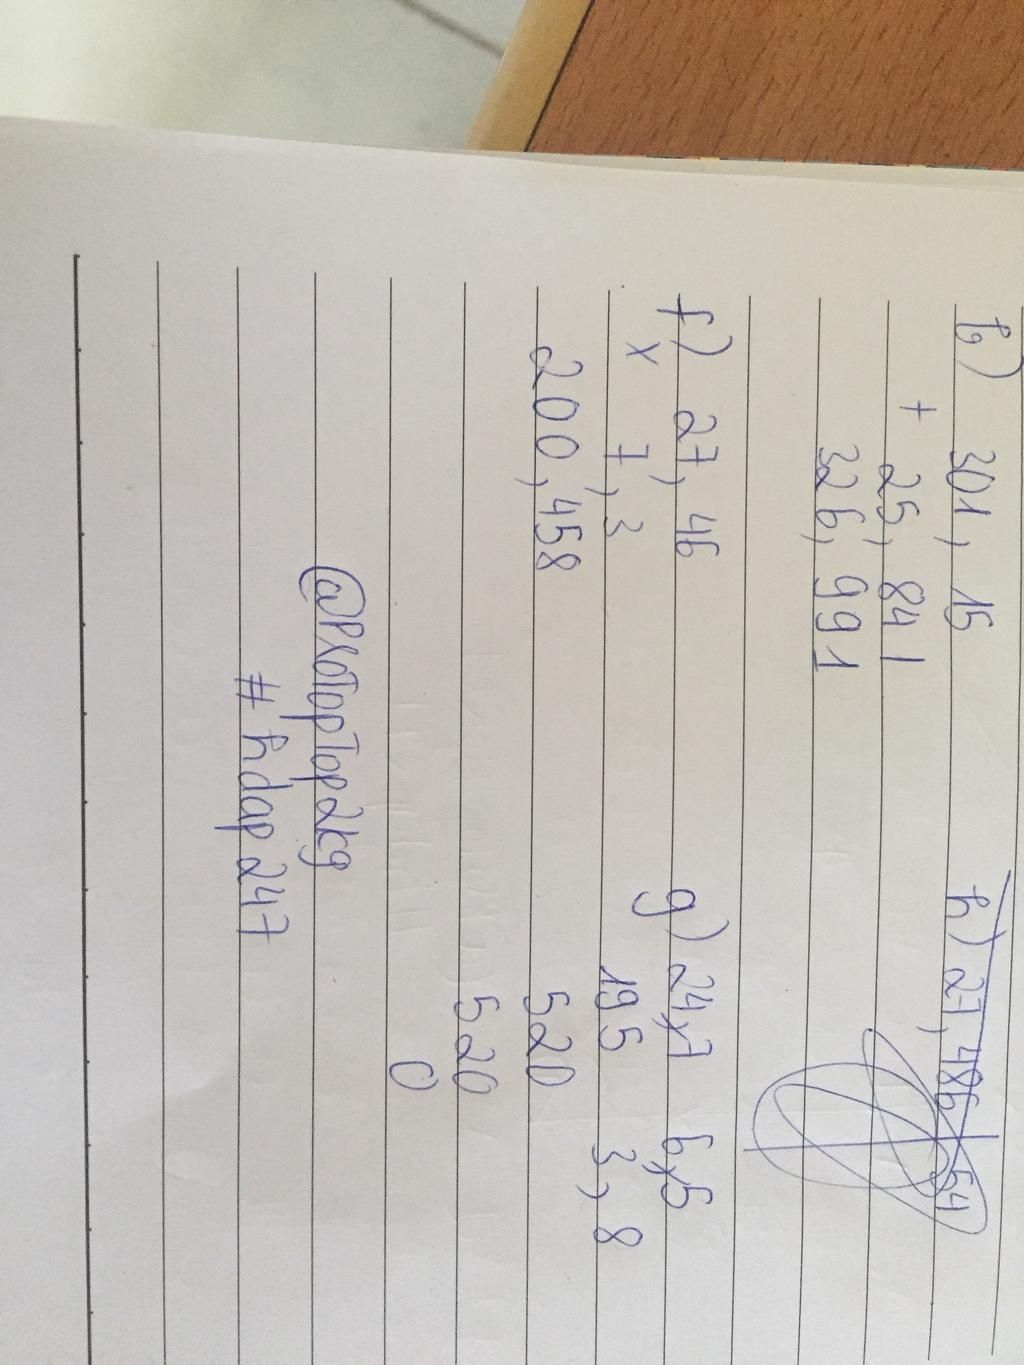 h) 301, 15
+ 25, 841
326, 991
h) 27,486 54
f) 27, 46
x 7,3
200,458
g) 24,7 6,5
195 3,8
520
520
0
@PloTopTop2kg
#hdap247